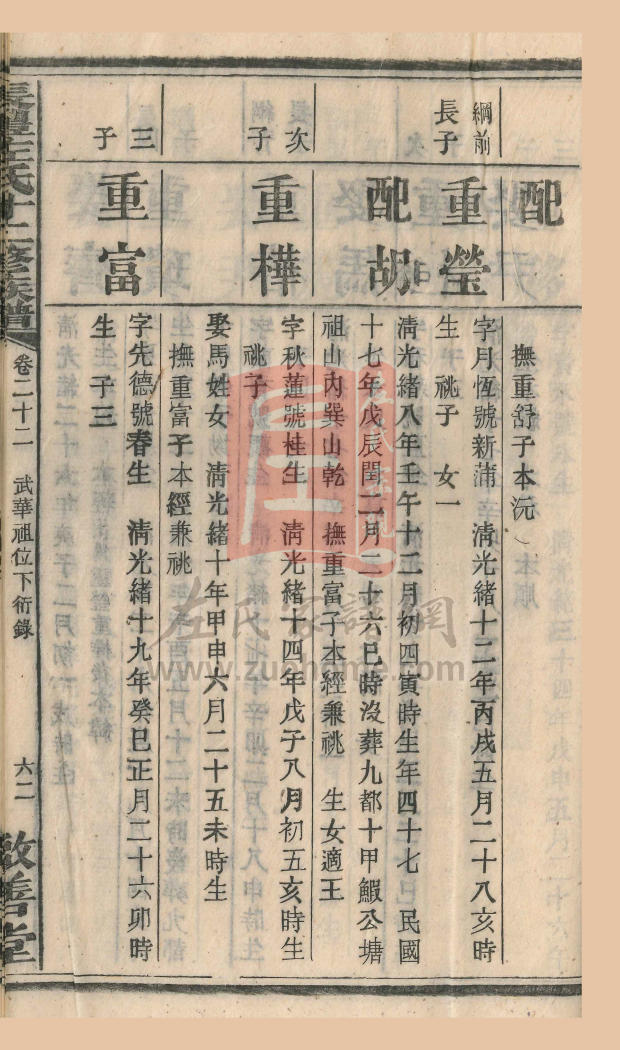 配
撫重舒子本沅
綱前
長子
重瑩
字月恆號新蒲 清光緒十二年丙戌五月二十八亥時
生 祧子 女一
配胡
清光緒八年壬午十二月初四寅時生年四十七巳民國
十七年戊辰閏二月二十六巳時沒葬九都十甲鰕公塘
祖山內巽山乾 撫重富子本經兼祧 生女適王
次
子
重樺
字秋蓮號桂生 清光緒十四年戊子八月初五亥時生
祧子
娶馬姓女 清光緒十年甲申六月二十五未時生
撫重富子本經兼祧
三
子
重富
字先德號春生 清光緒十九年癸巳正月二十六卯時
生 子三
長澧左氏十二修族譜
卷二十二 武華祖位下衍錄
六二
敬善堂
左氏家譜網
www.zuohome.com